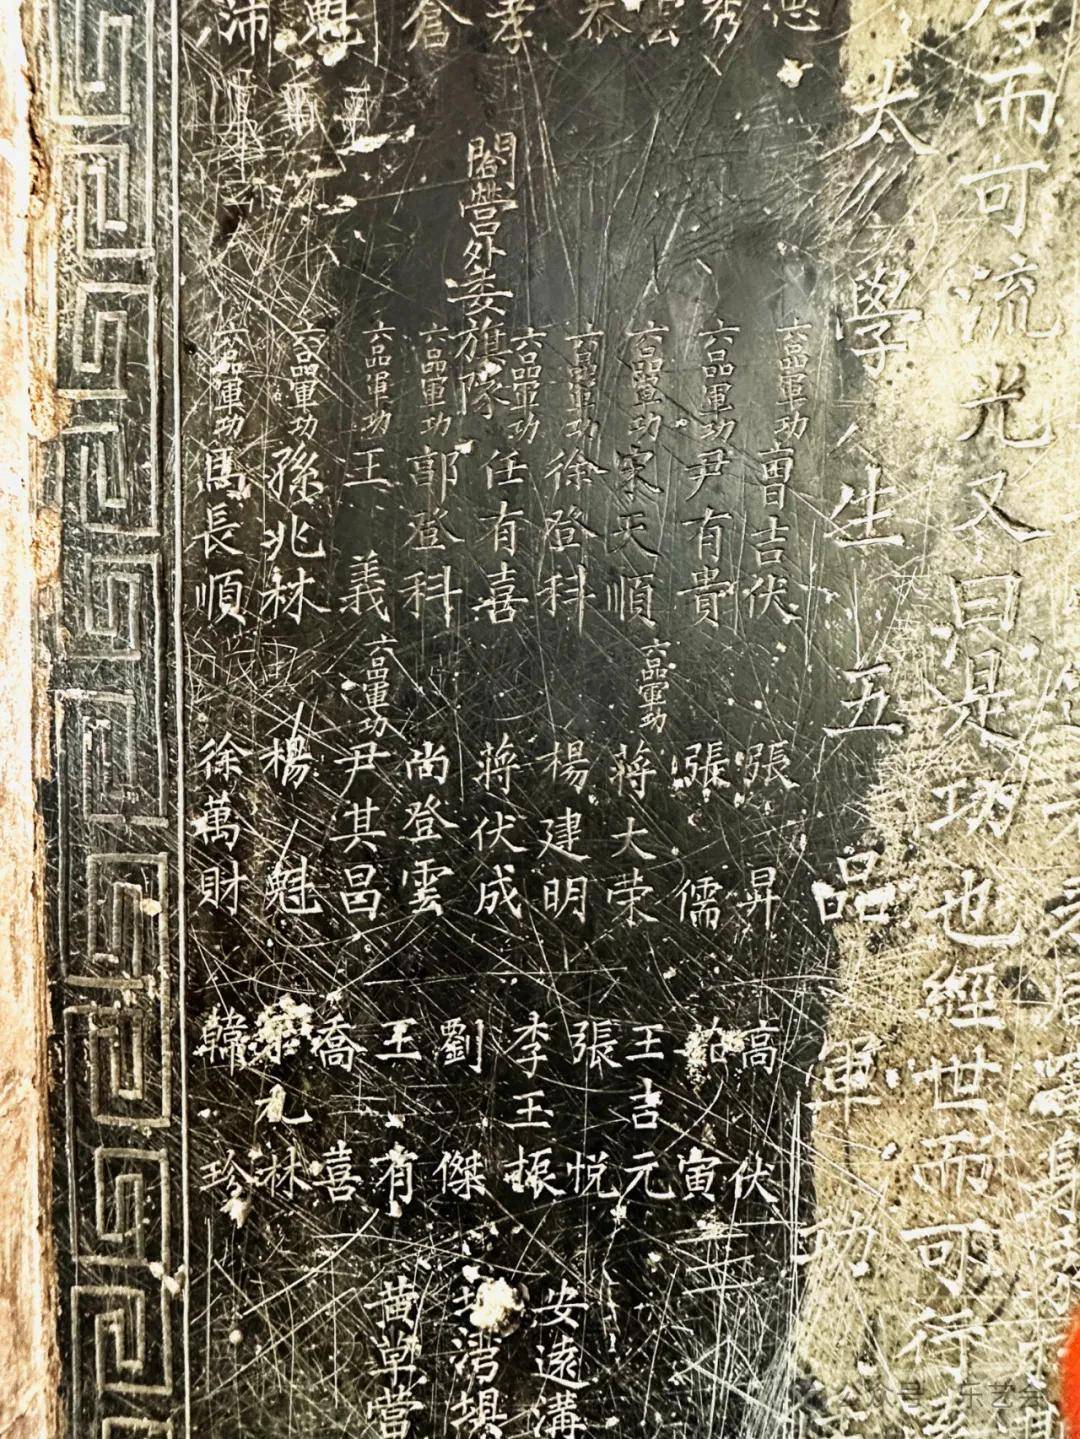 而可流光又曰是功也經世而可行
太學生五品軍功
德
秀
雲
泰
孝
倉
魁
沛
閤營外委旗隊
六品軍功曹吉伏
六品軍功尹有貴
六品軍功宋天順
六品軍功徐登科
六品軍功任有喜
六品軍功郭登科
六品軍功王義
六品軍功孫兆林
六品軍功馬長順
張昇
張儒
六品軍功蔣大荣
楊建明
蔣伏成
尚登雲
六品軍功尹其昌
楊魁
徐萬財
高伏
寅
王吉元
張悅
李玉振
劉傑
王有
喬喜
九林
韓珍
安遠溝
灣埧
黄草营